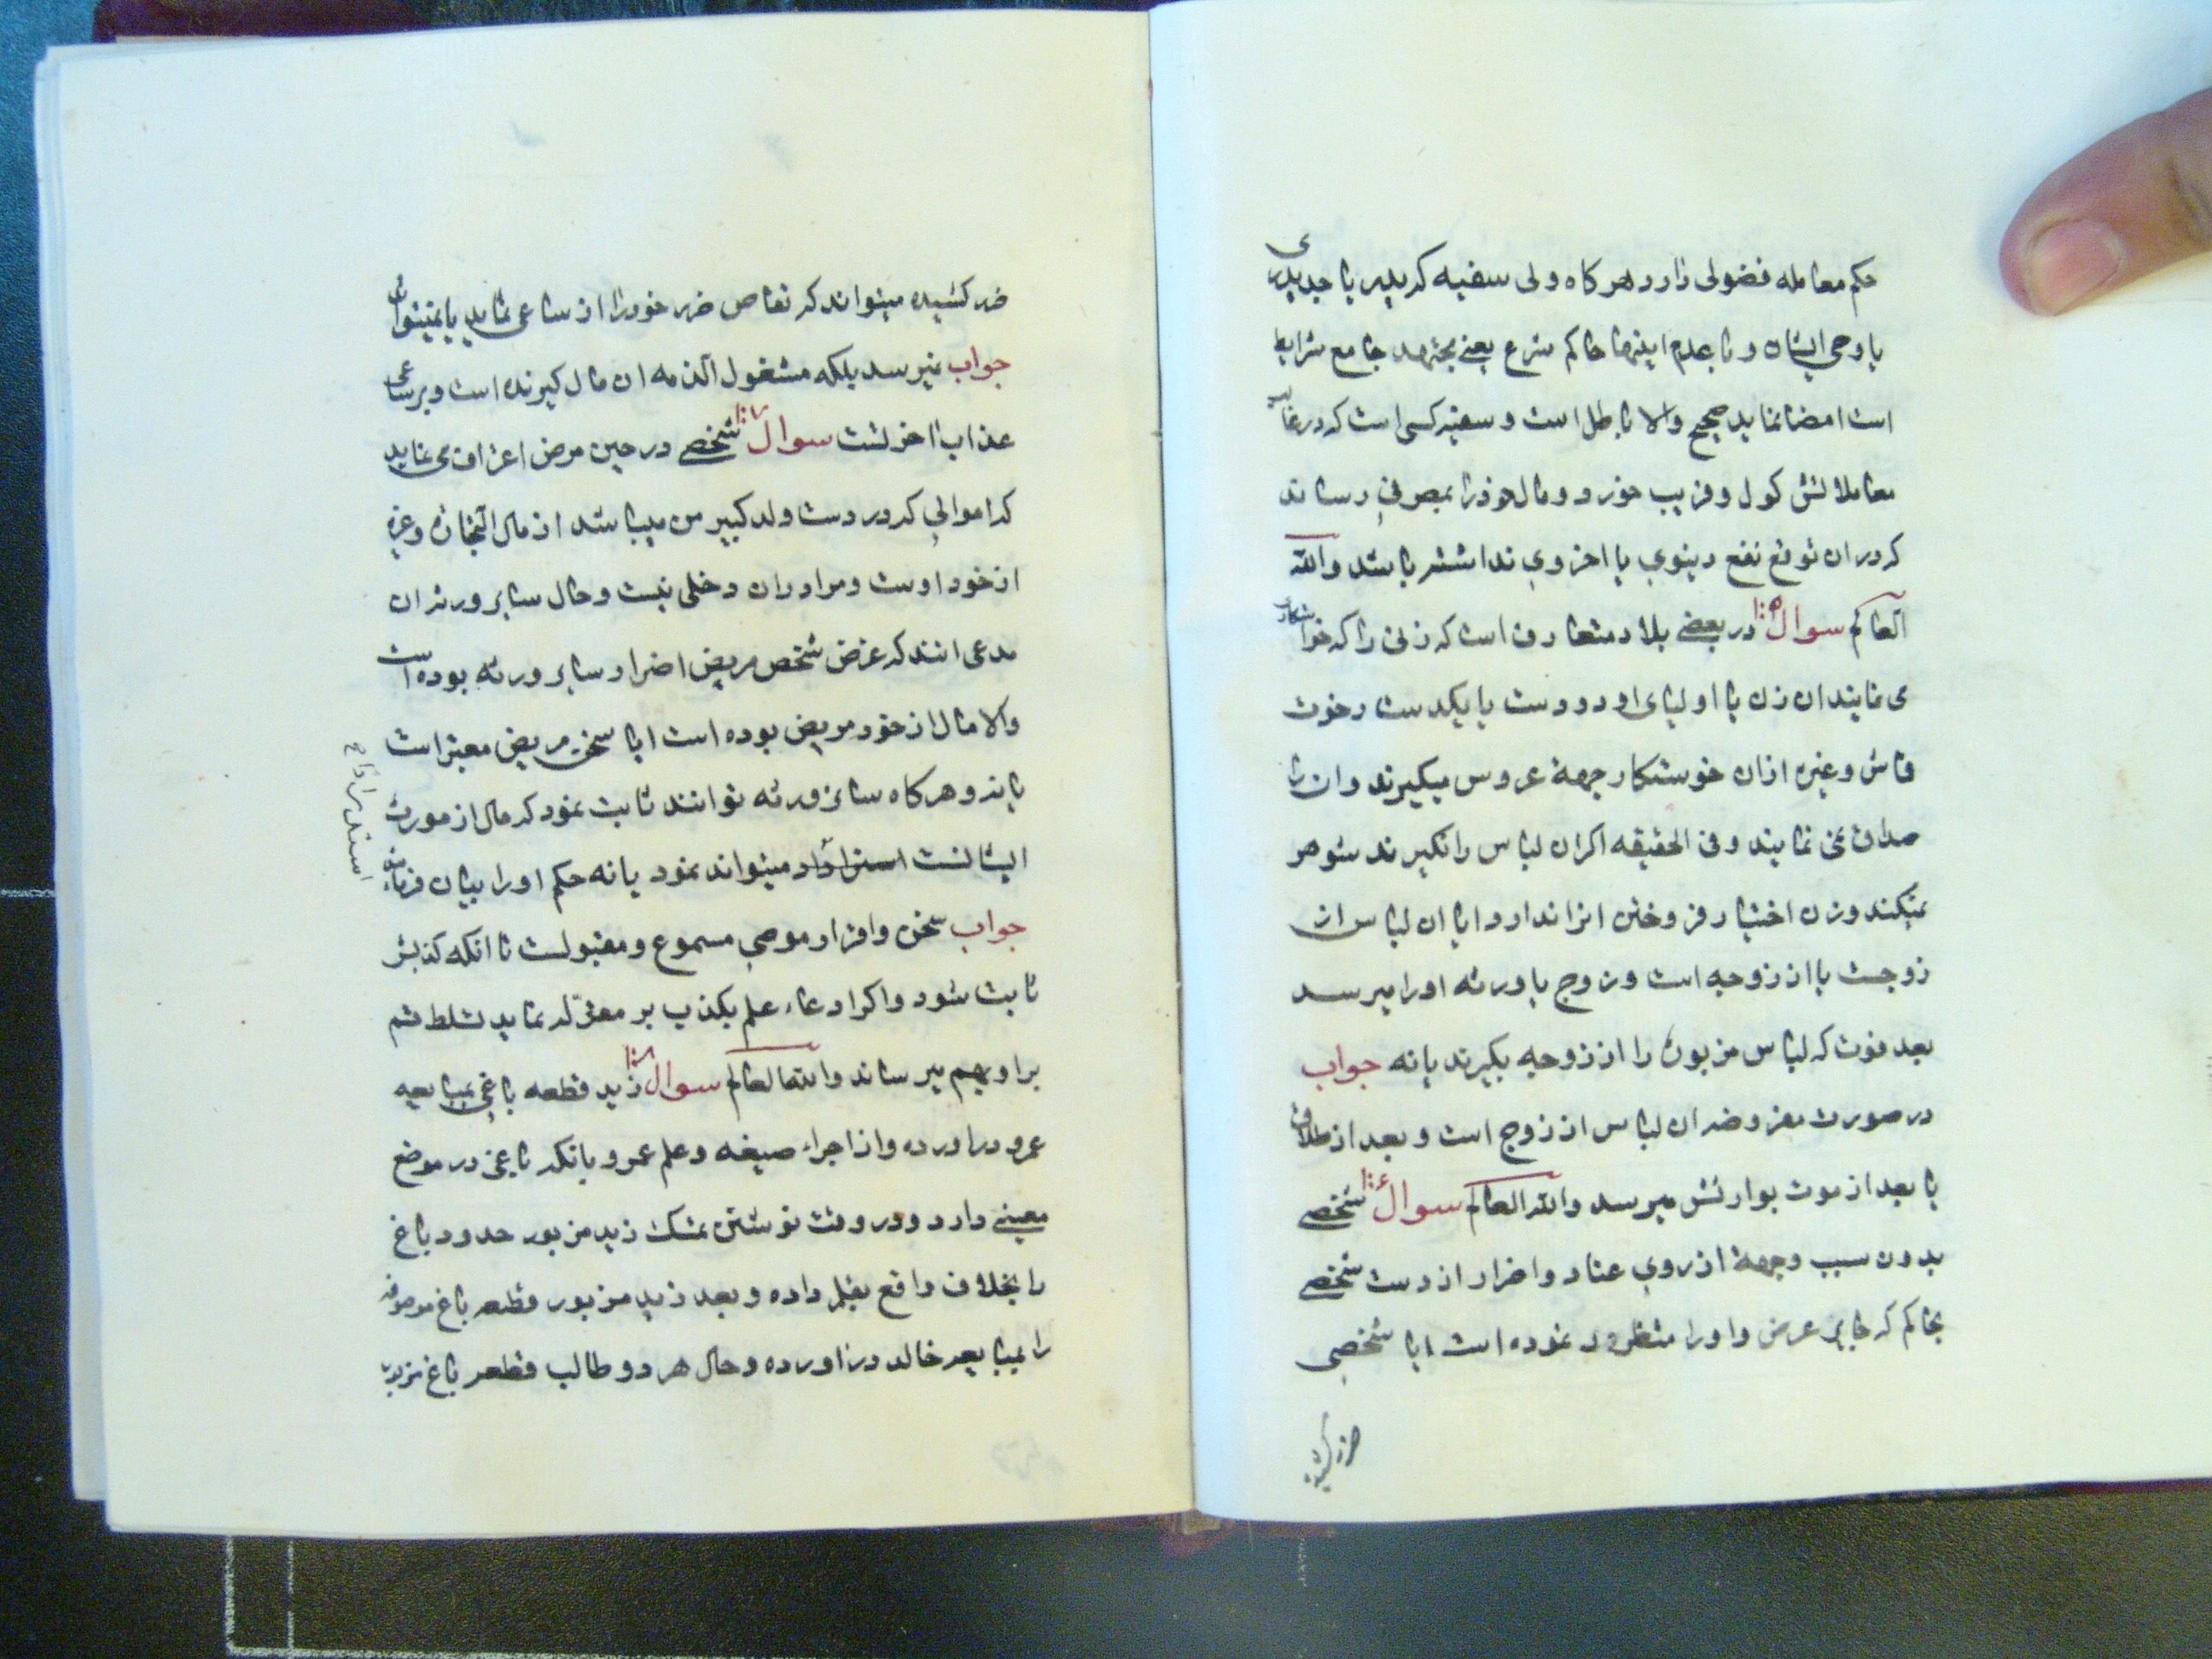 حکم معامله فضولی دارد هرکاه ولی سفیه که پدر یا جد پدری
یا وصی ایشان و با عدم اینها حاکم شرع یعنی مجتهد جامع شرایط
است امضا نماید صحیح والا باطل است و سفیه کسی است که در غالب
معاملاتش کول و فریب خورد و مال خود را بمصرفی رساند
که در ان توقع نفع دینوی یا اخروی نداشته باشد والله
العالم سوال در بعضی بلاد متعارف است که زنی را که خواستکاری
می نمایند ان زن یا اولیای او دو دست یا یکدست رخوت
قماش و غیره ازان خوستکار جهة عروس میکیرند و ان را
صداق نمی نمایند و فی الحقیقه اکر ان لباس را نکیرند شوهر
نمیکند و زن اختیار فروختن انرا ندارد ایا ان لباس از
زوجست یا از زوجه است و زوج یا ورثه او را میرسد
بعد فوت که لباس مزبون را از زوجه بکیرند یا نه جواب
در صورت مفروضه ان لباس از زوج است و بعد از طلاق
یا بعد از موت بوارثش میرسد والله العالم سوال شخصی
بدون سبب وجهة از روی عناد و اضرار از دست شخصی
بحاکم که جایر عرض و او را متظرر نموده است ایا شخصی
ضرر کشیده
ضرر کشیده میتواند که تقاص ضرر خود را از ساعی نماید یا نمیتواند
جواب نمیرسد بلکه مشغول الذمه ان مال کیرنده است و بر ساعی
عذاب اخرتست سوال شخصی در حین مرض اعتراف می نماید
که اموالی که در دست ولد کبیر من میباشد از مال التجاره و غیره
از خود اوست و مرا در ان دخلی نیست و حال سایر ورثه ان
مدعی انند که غرض شخص مریض اضرار سایر ورثه بوده است
والا مال از خود مریض بوده است ایا سخن مریض معتبر است
یا نه و هرکاه سایر ورثه توانند ثابت نمود که مال از مورث
ایشانست استرداد میتواند نمود یا نه حکم او را بیان فرمایند
استرداد ح
جواب سخن و اقرار موصی مسموع و مقبولست تا انکه کذبش
ثابت شود و اکر ادعاء علم بکذب بر مقر له نماید تسلط قسم
بر او بهم میرساند والله العالم سوال زید قطعه باغی بمبایعه
عمرو دراورده و از اجراء صیغه و علم عمرو بانکه باغی در موضع
معینی دارد و در وقت نوشتن تمسک زید مزبور حدود باغ
را بخلاف واقع بقلم داده و بعد زید مزبور قطعه باغ موصوفه
را بمبایعه خالد دراورده و حال هر دو طالب قطعه باغ مزبور